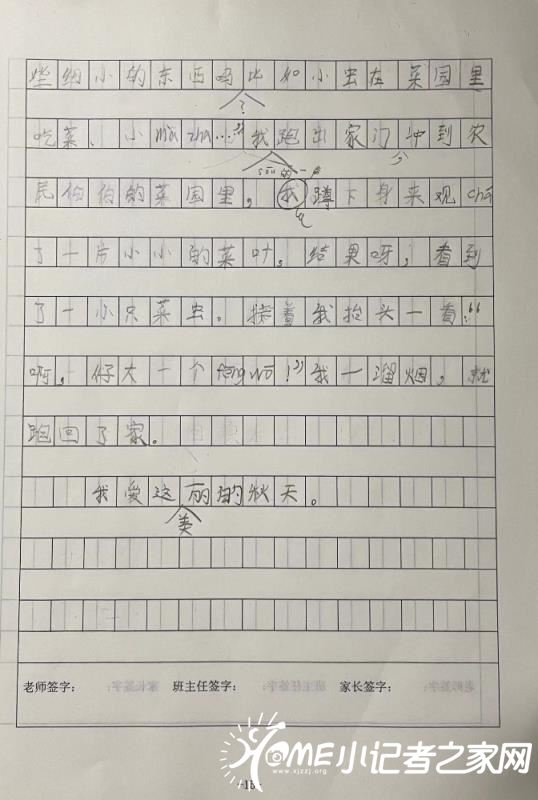 些细小的东西吗比如小虫在菜园里
?
吃菜、小mà zha…”我跑出家门冲到农
sōu的一声
民伯伯的菜园里，我蹲下身来观chá
了一片小小的菜叶，结果呀，看到
了一小只菜虫。接着我抬头一看：“
啊，好大一个fēng wō!”我一溜烟，就
跑回了家。
我爱这丽的秋天。
美
老师签字： 班主任签字： 家长签字：
-15-
HOME小记者之家网
www.xjzzj.org